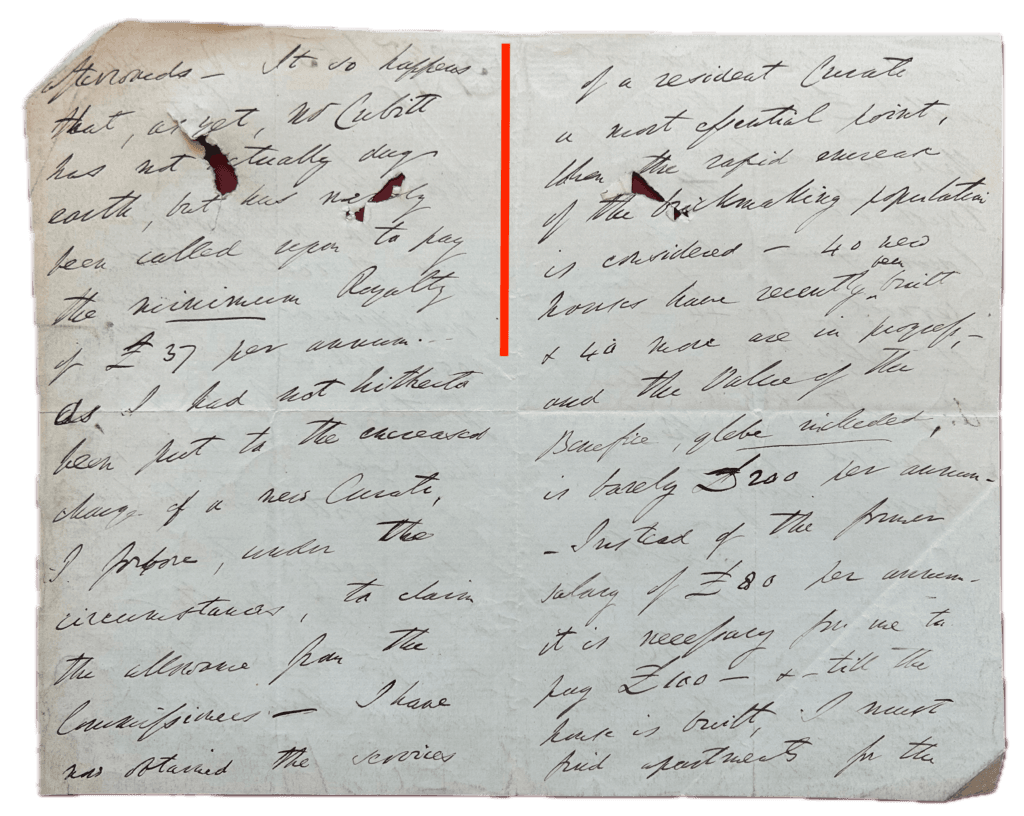 afterwards — It so happens
that, as yet, no Cubitt
has not actually dug
earth, but has merely
been called upon to pay
the minimum Royalty
of £37 per annum...
As I had not hitherto
been put to the encreased
charge of a new Curate,
I forbore, under the
circumstances, to claim
the allowance from the
Commissioners — I have
now obtained the services
of a resident Curate
a most essential point,
when the rapid encrease
of the brickmaking population
is considered — 40 new
houses have recently been built
& 40 more are in progress, —
and the Value of the
Benefice, glebe included,
is barely £200 per annum —
— Instead of the former
salary of £80 per annum —
it is necessary for me to
pay £100 — & — till the
house is built, I must
find apartments for the